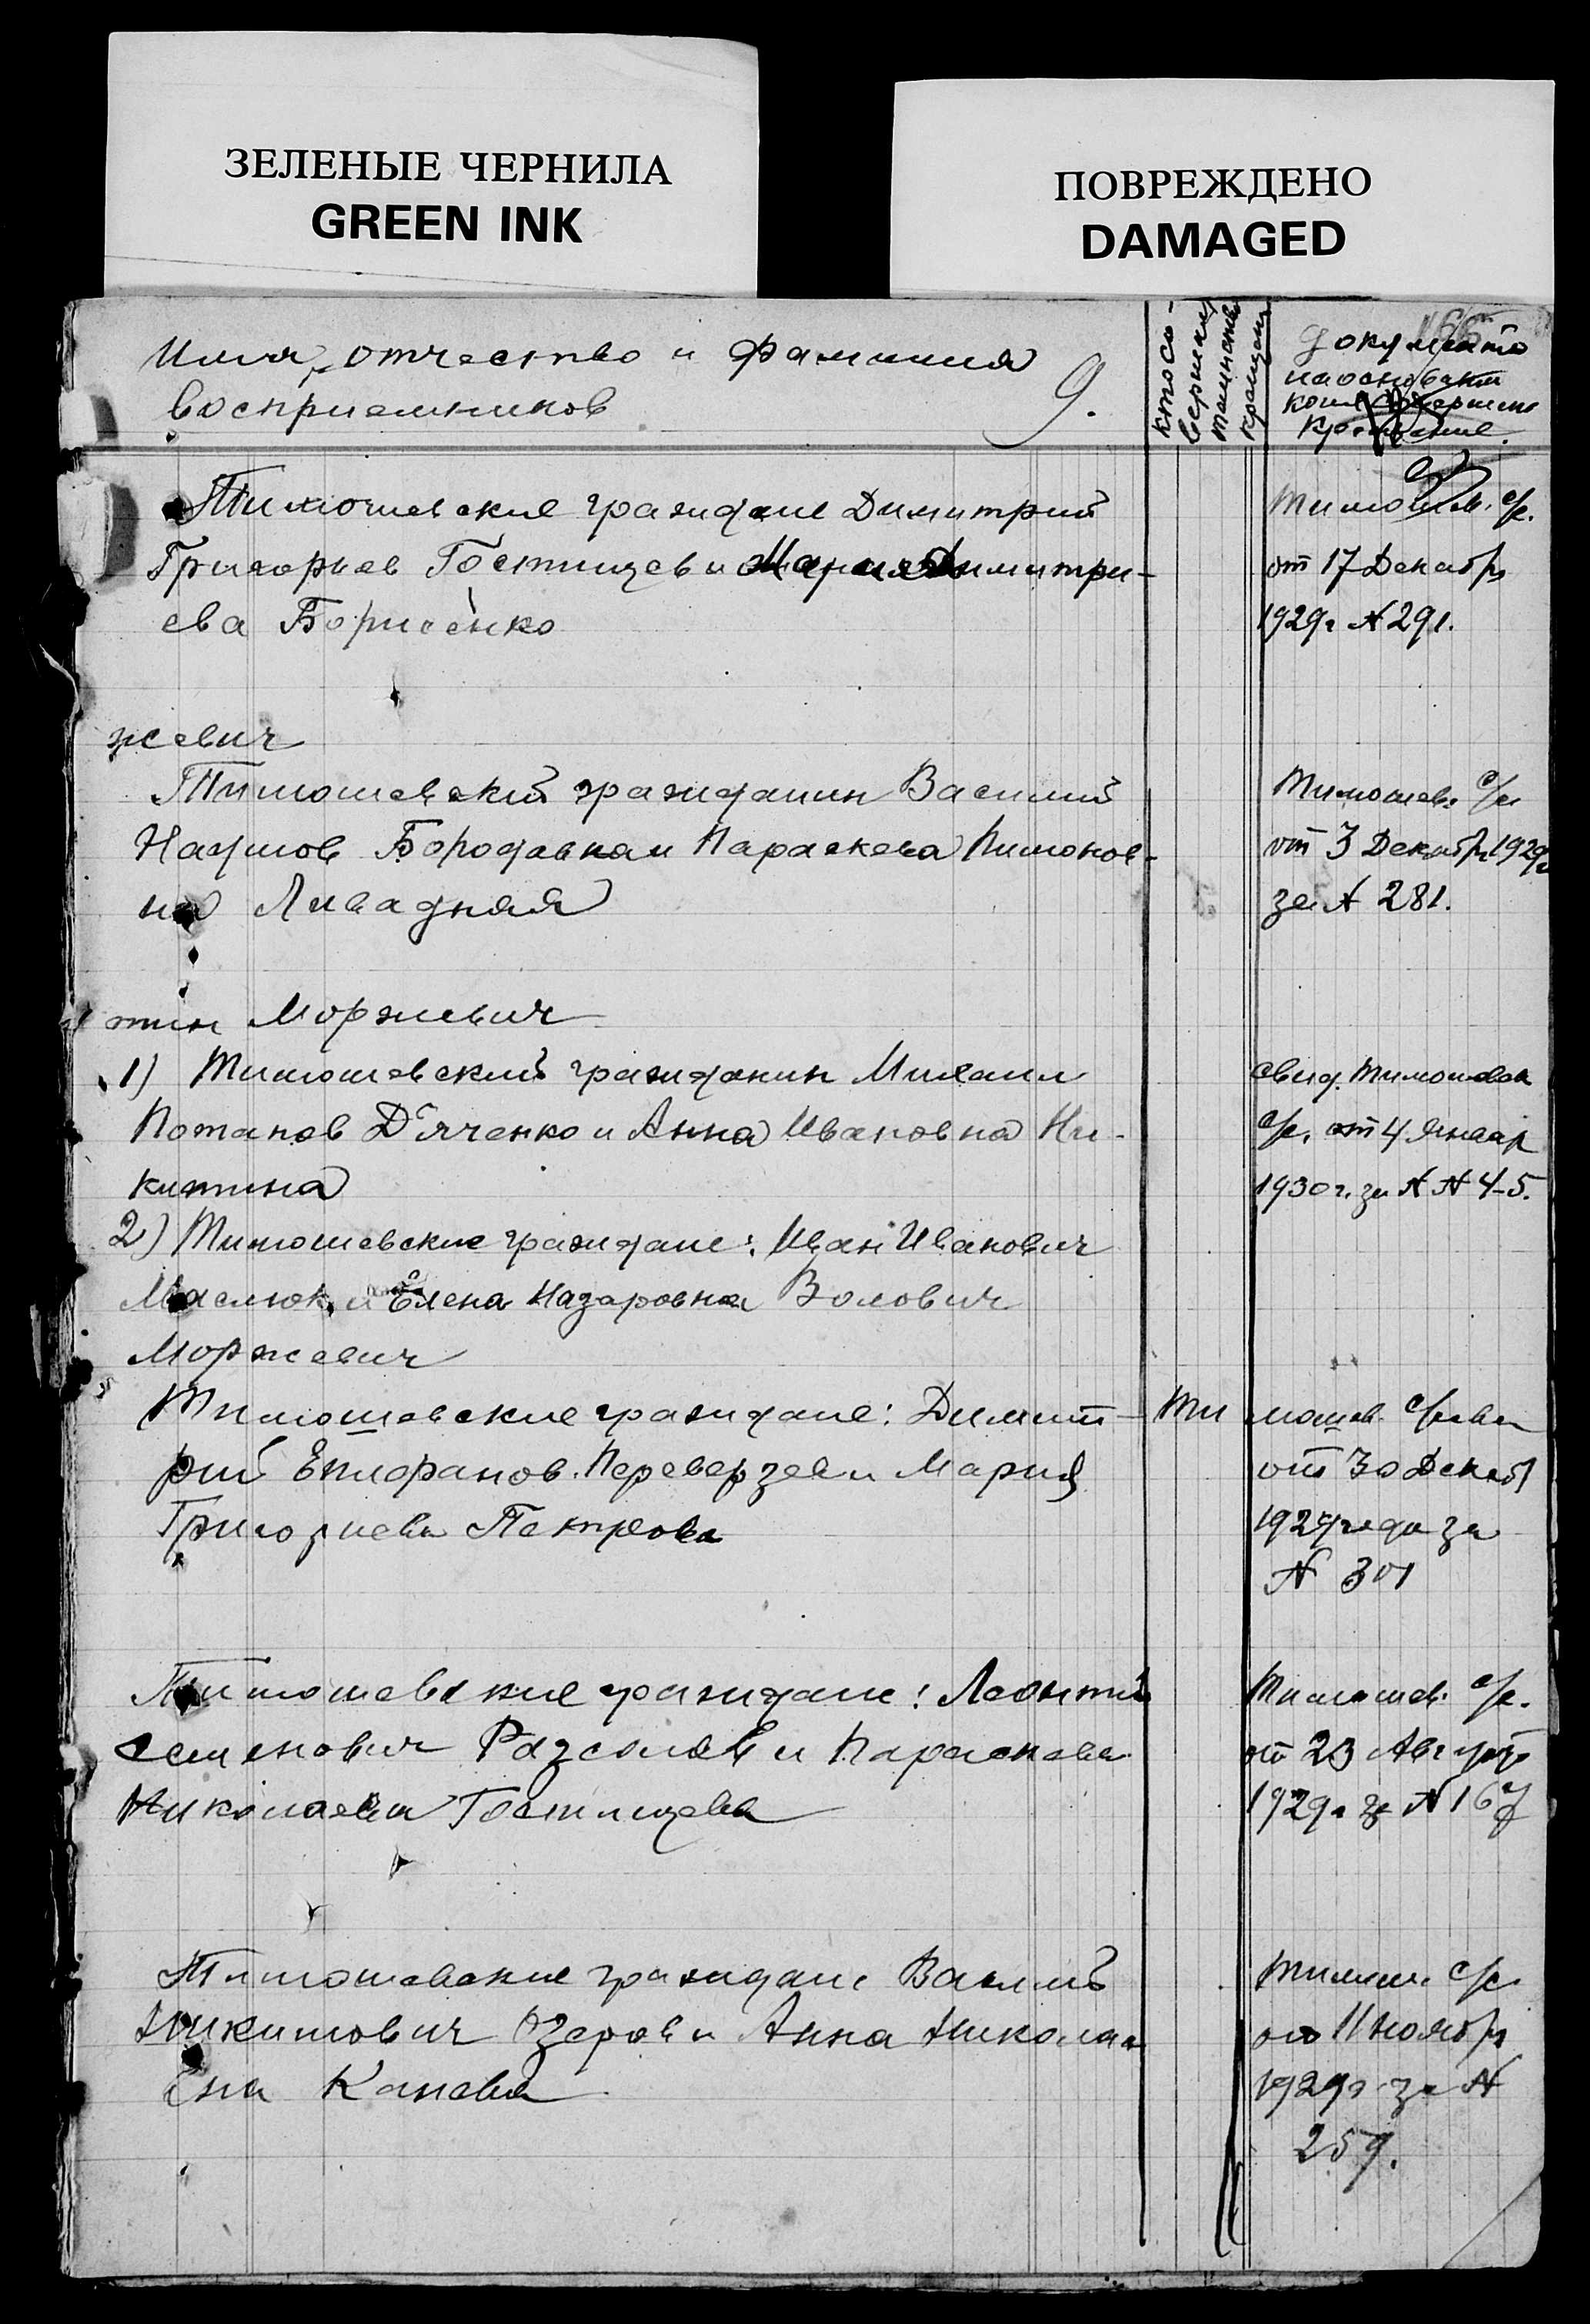 ЗЕЛЕНЫЕ ЧЕРНИЛА
GREEN INK
ПОВРЕЖДЕНО
DAMAGED
Имя, отчество и фамилия
восприемников
9.
кто со-
вершал
таинство
крещения
166
Документ
на основании
коего совершено
крещение.
Тимошевские граждане Димитрий
Григорьев Гостищев и Мария Димитри-
ева Борисенко
Тимошев. с/с.
от 17 Декабр
1929г. № 291.
жевич
Тимошевский гражданин Василий
Наумов Бородавка и Параскева Пимонов-
на Ливадняя
Тимошев. с/с
от 3 Декабр. 1929г.
за № 281.
тин Моржевич
1) Тимошевский гражданин Михаил
Потапов Дяченко и Анна Ивановна Ни-
китина
2) Тимошевские граждане: Иван Иванович
Маслюк и Елена Назаровна Волович
свид. Тимошевск
с/с. от 4 Январ
1930 г. за № № 4-5.
Моржевич
Тимошевские граждане: Димит-
рий Епифанов Переверзев и Мария
Григориева Петрова
Ти мошев. с/сове
от 30 Декаб
1929 года за
№ 301
Тимошевские граждане: Леонтий
Семенович Разсолов и Параскева
Николаева Гостищева
Тимошев. с/с.
от 23 Августа
1929г. за № 167
Тимошевские граждане Василий
Никитович Озеров и Анна Никола-
ена Канева
Тимош. с/с
от 11 ноябр
1929г. за №
259.